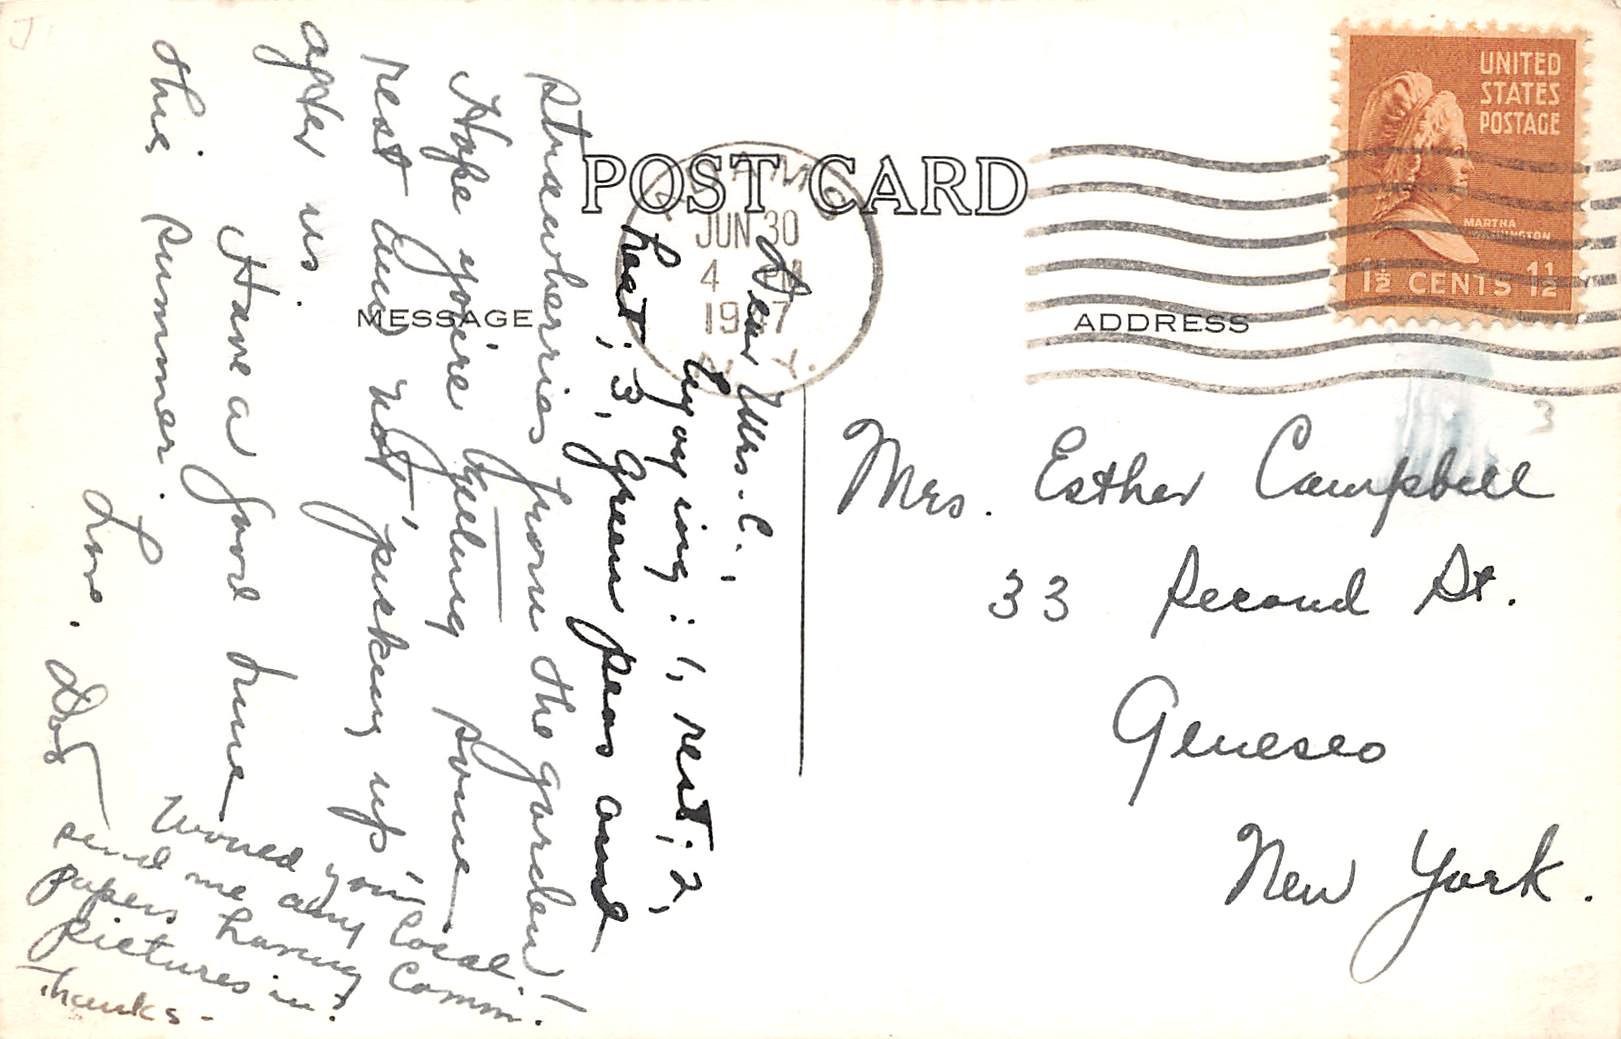 POST CARD
MESSAGE
ADDRESS
UNITED
STATES
POSTAGE
MARTHA
WASHINGTON
1½ CENTS 1½
JUN 30
4
19 7
N. Y.
3
Mrs. Esther Campbell
33 Second St.
Geneseo
New York.
Dear Mrs. C.,
Enjoying: 1, rest; 2,
heat; 3, green peas and
strawberries from the garden!
Hope you're getting some
rest and not picking up
after us.
Have a good time
this summer.
Love, Dot
Would you
send me any local
papers having Comm.
pictures in?
Thanks-